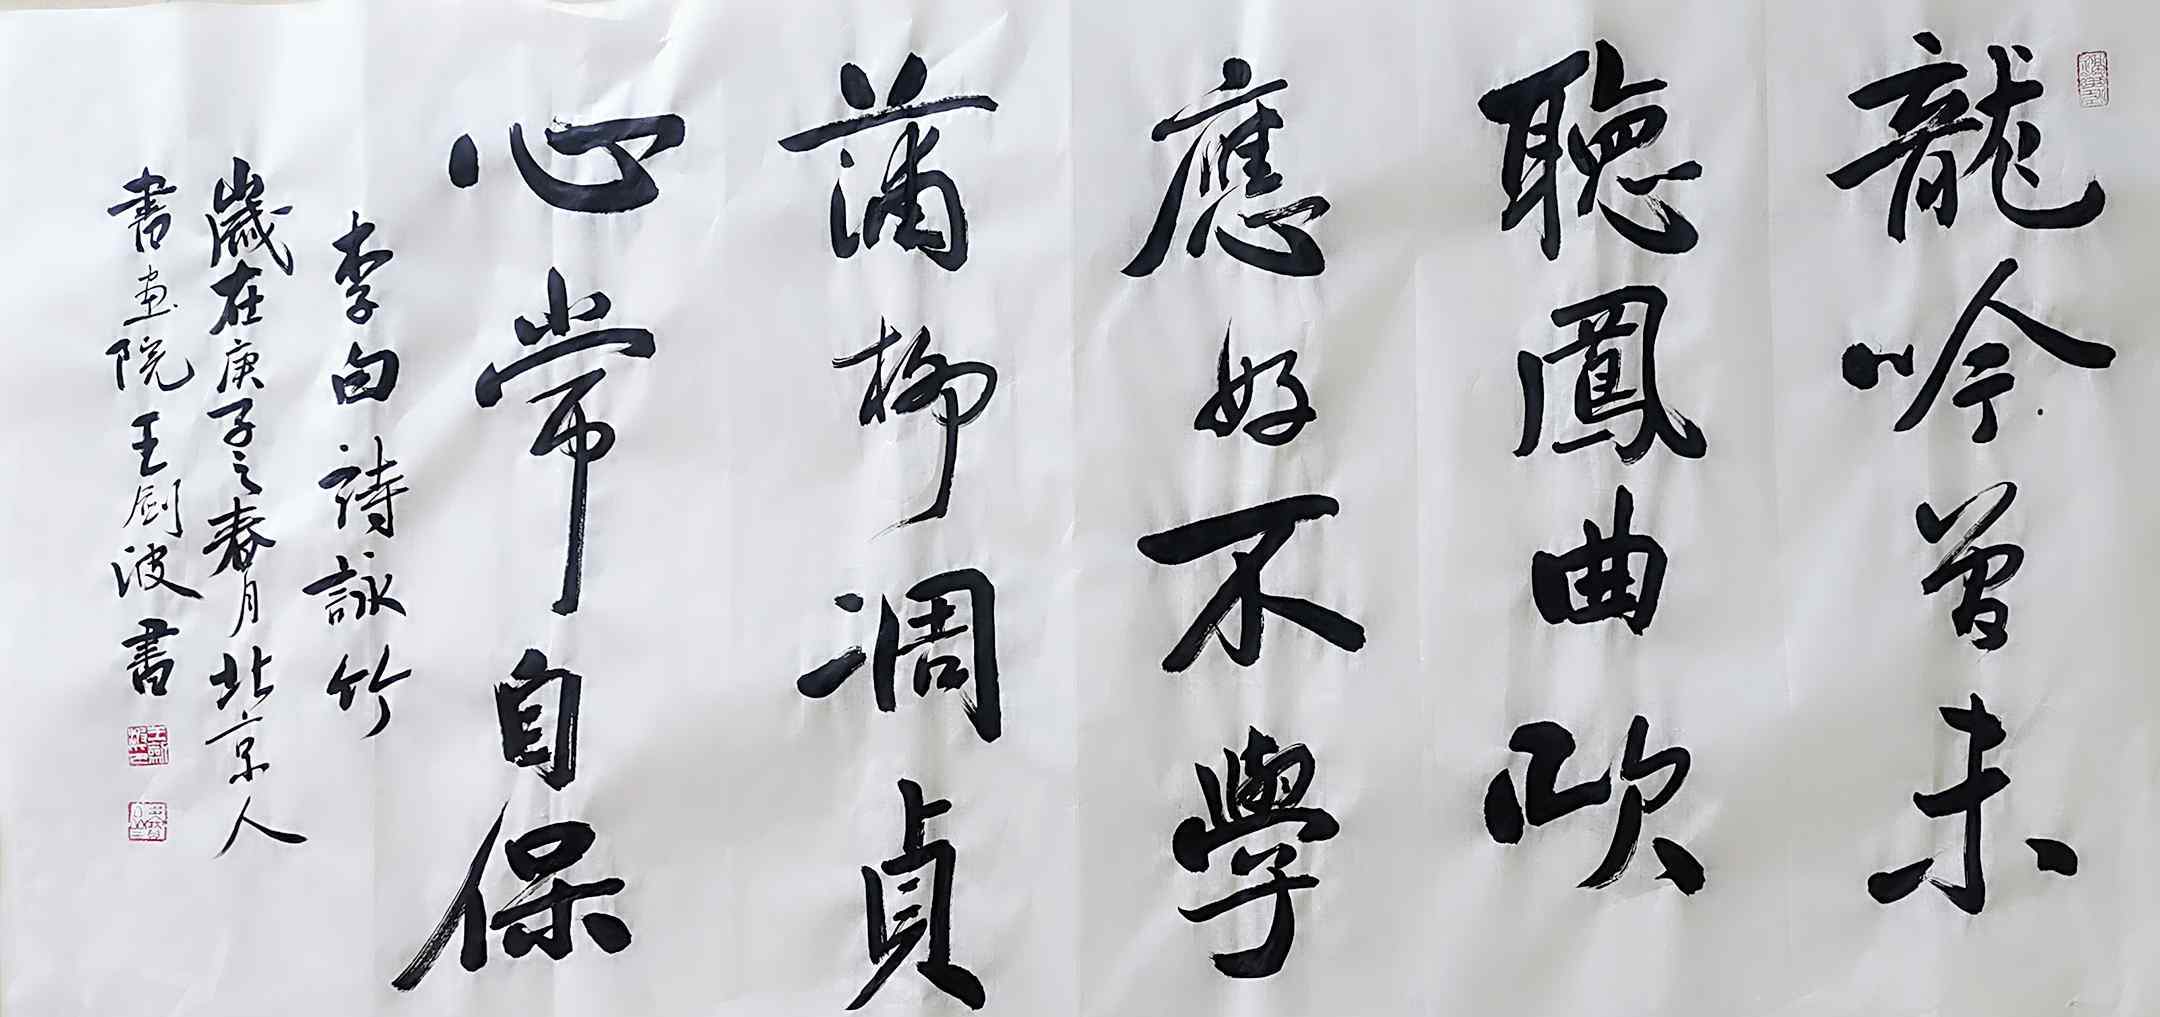 龍吟曾未
聽鳳曲吹
應好不學
蒲柳凋貞
心常自保
李白詩詠竹
歲在庚子之春月北京人
書画院王劍波書